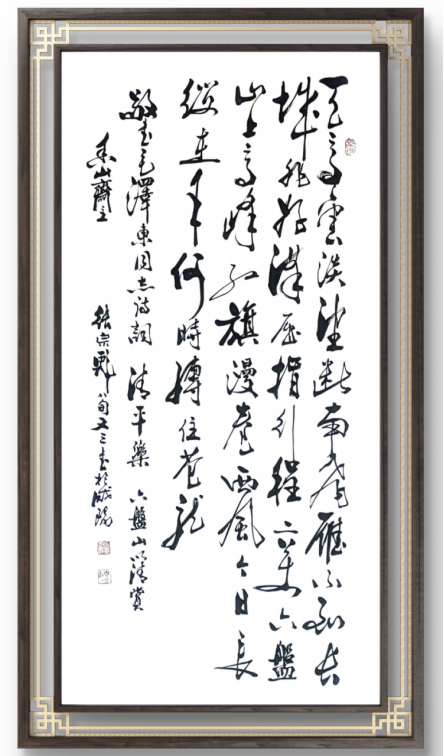 天高雲淡望斷南飛雁不到長
城非好漢屈指行程二萬六盤
山上高峰紅旗漫卷西風今日長
纓在手何時縛住蒼龍
敬書毛澤東同志詩詞 清平樂 六盤山以清賞
山齋主 張宗 八旬又三書於咸陽